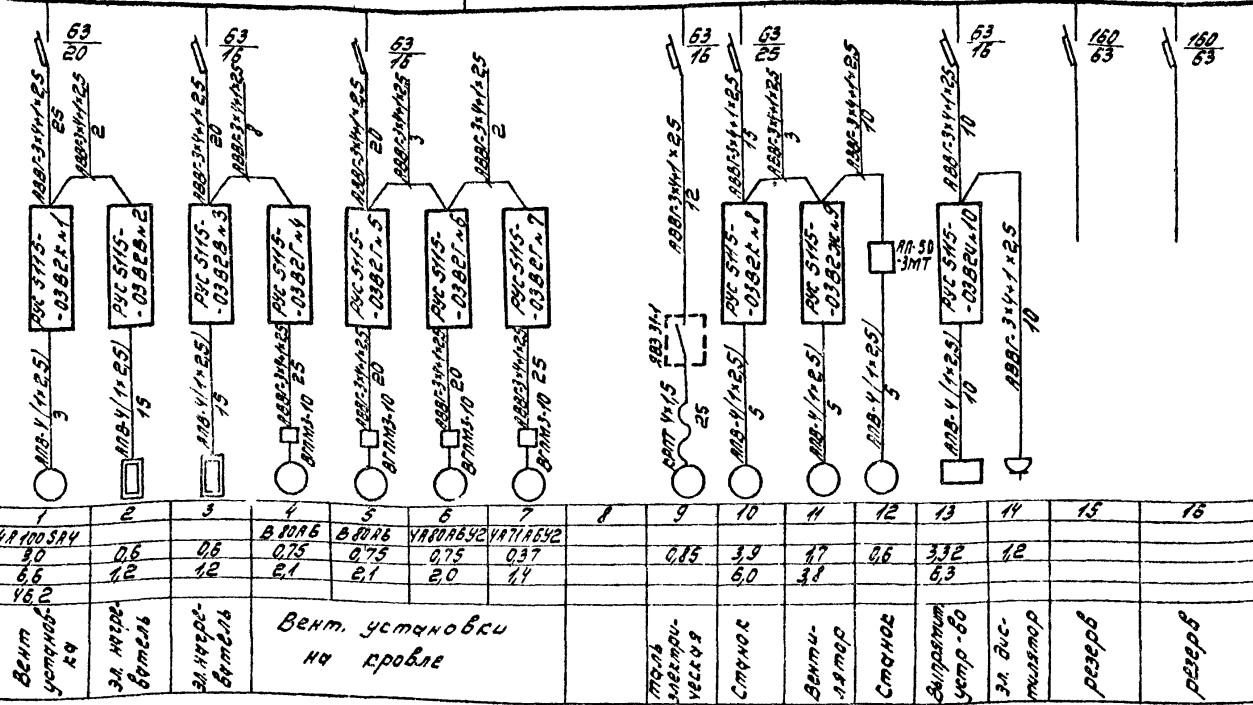 63/20
63/16
63/16
63/16
63/25
63/16
160/63
160/63
АВВГ-3×4+1×2,5
25
АВВГ-3×4+1×2,5
2
АВВГ-3×4+1×2,5
20
АВВГ-3×4+1×2,5
8
АВВГ-3×4+1×2,5
20
АВВГ-3×4+1×2,5
3
АВВГ-3×4+1×2,5
2
АВВГ-3×4+1×2,5
12
АВВГ-3×4+1×2,5
15
АВВГ-3×4+1×2,5
3
АВВГ-3×4+1×2,5
10
АВВГ-3×4+1×2,5
10
РУС 5115-
-03В2К №1
РУС 5115-
-03В2В №2
РУС 5115-
-03В2В №3
РУС 5115-
-03В2Г №4
РУС 5115-
-03В2Г №5
РУС 5115-
-03В2Г №6
РУС 5115-
-03В2Г №7
РУС 5115-
-03В2К №8
РУС 5115-
-03В2Ж №9
АП-50
-3МТ
РУС 5115-
-03В2И №10
АВВГ-3×4+1×2,5
10
ЯВЗ 31-1
АПВ-4(1×2,5)
3
АПВ-4(1×2,5)
15
АПВ-4(1×2,5)
15
АВВГ-3×4+1×2,5
25
ВПМЗ-10
АВВГ-3×4+1×2,5
20
ВПМЗ-10
АВВГ-3×4+1×2,5
20
ВПМЗ-10
АВВГ-3×4+1×2,5
25
ВПМЗ-10
КРПТ 4×1,5
25
АПВ-4(1×2,5)
5
АПВ-4(1×2,5)
5
АПВ-4(1×2,5)
5
АПВ-4(1×2,5)
10
1 2 3 4 5 6 7 8 9 10 11 12 13 14 15 16
4А100SА4 В80А6 В80А6 4А80А6У2 4А71А6У2
3,0 0,6 0,6 0,75 0,75 0,75 0,37 0,85 3,9 1,7 0,6 3,32 1,2
6,6 1,2 1,2 2,1 2,1 2,0 1,4 6,0 3,8 6,3
46,2
Вент
установ-
ка
Эл. нагре-
ватель
Эл. нагре-
ватель
Вент. установки
на кровле
Таль
электри-
ческая
Станок
Венти-
лятор
Станок
Выпрямит.
устр-во
Эл. дис-
тилятор
резерв
резерв